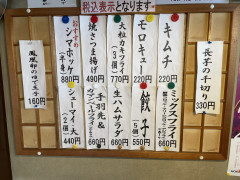 税込表示となります。
長芋の千切り
330円
キムチ
220円
ミックスフライ
660円
モロキュー
220円
餃子
(5個)
550円
大粒カキフライ
(3個)
770円
生ハムサラダ
660円
焼さつま揚げ
490円
手羽先&
660円
おすすめ
シマホッケ
(半身)
880円
シューマイ
(2個)
440円
鳳凰卵のゆで玉子
160円